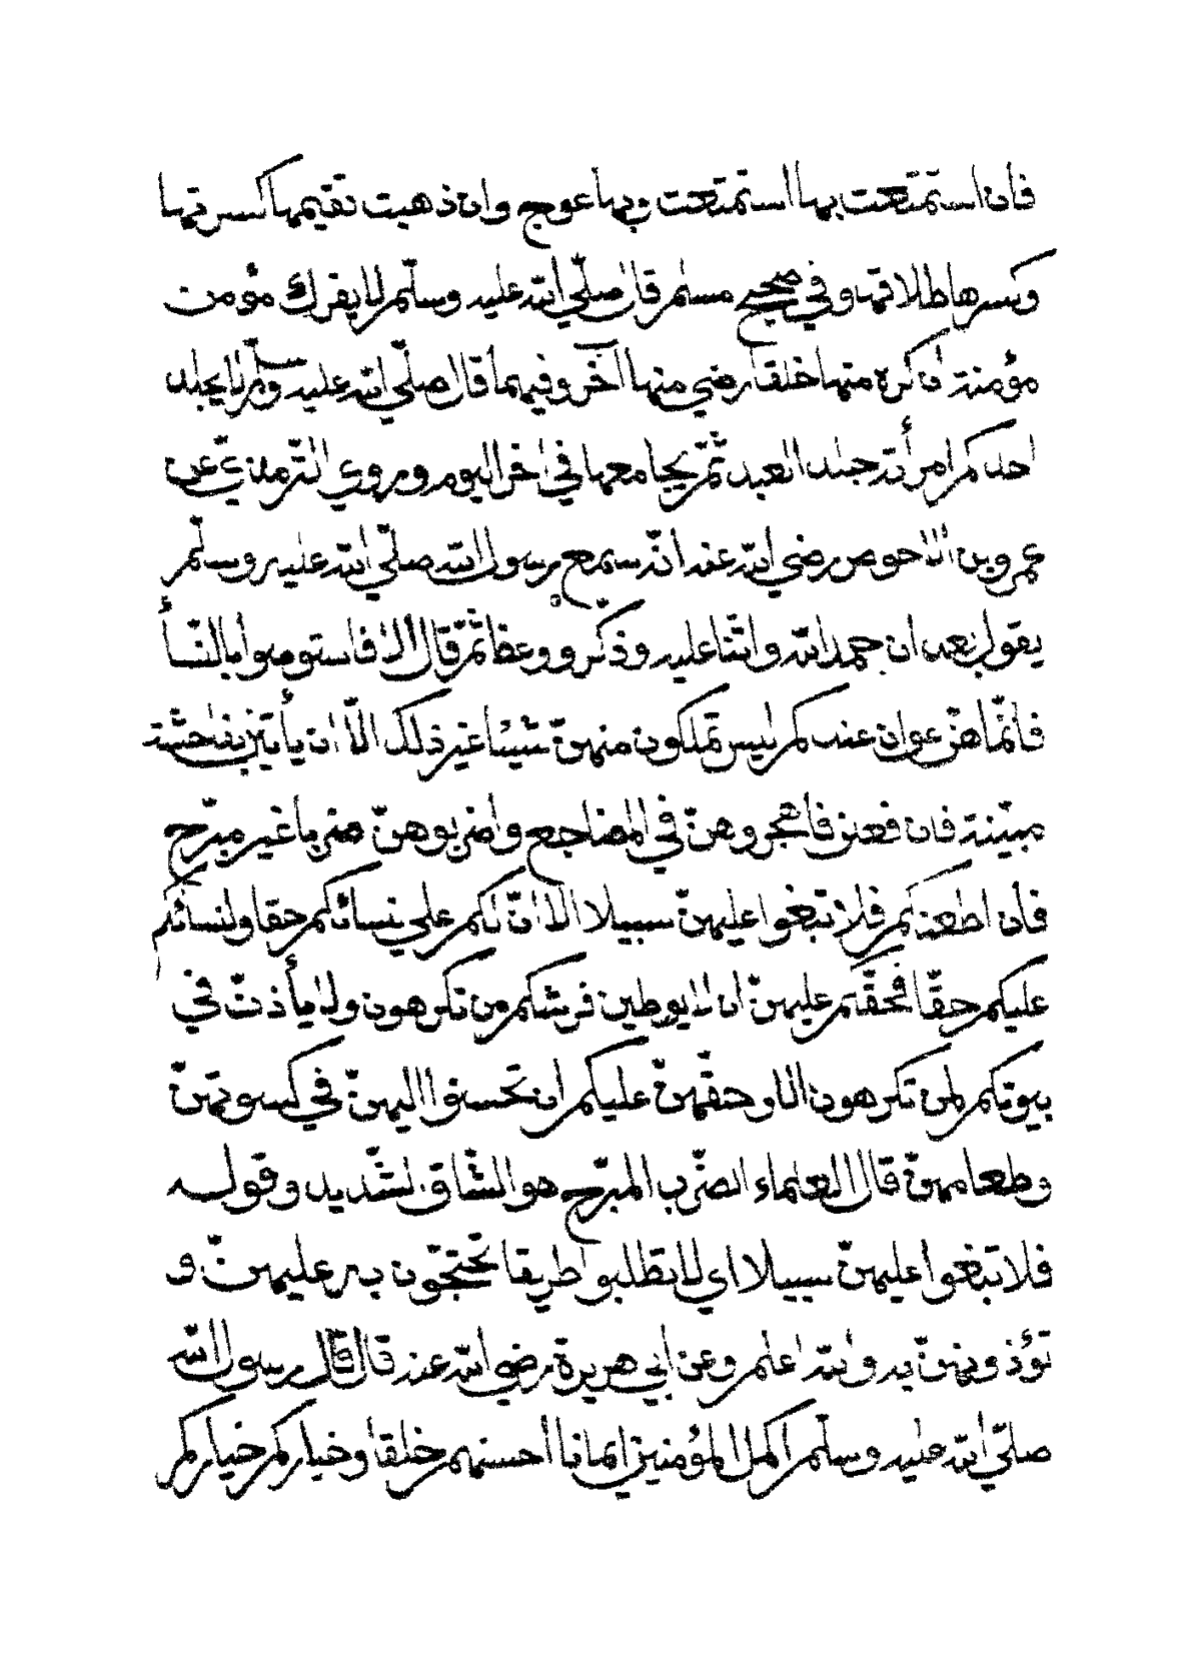 فان استمتعت بها استمتعت وبها عوج وان ذهبت تقيمها كسرتها
وكسرها طلاقها وفي صحيح مسلم قال صلّي الله عليه وسلّم لا يفرك مؤمن
مؤمنة ان كره منها خلقا رضي منها آخر وفيهما قال صلّي الله عليه وسلّم لا يجلد
احدكم امرأته جلد العبد ثمّ يجامعها في اخر اليوم وروي التّرمذيّ عن
عمرو بن الاحوص رضي الله عنه انّه سمع رسول الله صلّي الله عليه وسلّم
يقول بعد ان حمد الله واثنا عليه وذكّر ووعظ ثمّ قال ألا فاستوصوا بالنّسأ
فانّما هنّ عوان عندكم ليس تملكون منهنّ شيئا غير ذلك الّا ان يأتين بفاحشة
مبيّنة فان فعلن فاهجروهنّ في المضاجع واضربوهنّ ضربا غير مبرّح
فان اطعنكم فلا تبغوا عليهنّ سبيلا الا انّ لكم علي نسائكم حقا ولنسائكم
عليكم حقّا فحقّكم عليهنّ ان لا يوطين فرشكم من تكرهون ولا يأذنّ في
بيوتكم لمن تكرهون الا وحقّهنّ عليكم ان تحسنوا اليهنّ في كسوتهنّ
وطعامهنّ قال العلماء الضّرب المبرّح هو الشّاق لشّديد وقوله
فلا تبغوا عليهنّ سبيلا اي لا تطلبوا طريقا تحتجّون به عليهنّ و
تؤذونهنّ به والله اعلم وعن ابي هريرة رضي الله عنه قال قال رسول الله
صلّي الله عليه وسلّم اكمل المؤمنين ايمانا احسنهم خلقا وخياركم خياركم